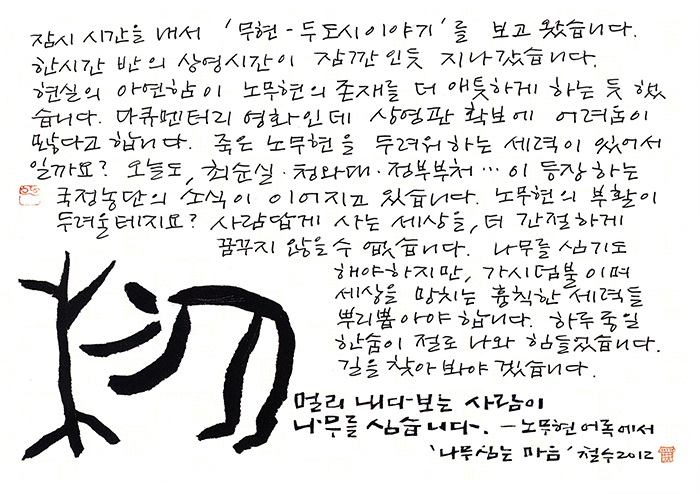 잠시 시간을 내서 '무현-두도시이야기'를 보고 왔습니다.
한시간 반의 상영시간이 잠깐인듯 지나갔습니다.
현실의 아연함이 노무현의 존재를 더 애틋하게 하는 듯 했
습니다. 다큐멘터리 영화인데 상영관 확보에 어려움이
많다고 합니다. 죽은 노무현을 두려워하는 세력이 있어서
일까요? 오늘도, 최순실·청와대·정부부처…이 등장하는
국정농단의 소식이 이어지고 있습니다. 노무현의 부활이
두려울테지요? 사람답게 사는 세상을, 더 간절하게
꿈꾸지 않을 수 없습니다. 나무를 심기도
해야하지만, 가시덤불이며
세상을 망치는 흉칙한 세력들
뿌리뽑아야 합니다. 하루종일
한숨이 절로 나와 힘들었습니다.
길을 찾아 봐야 겠습니다.
멀리 내다보는 사람이
나무를 심습니다. -노무현어록에서
'나무심는 마음' 철수2012